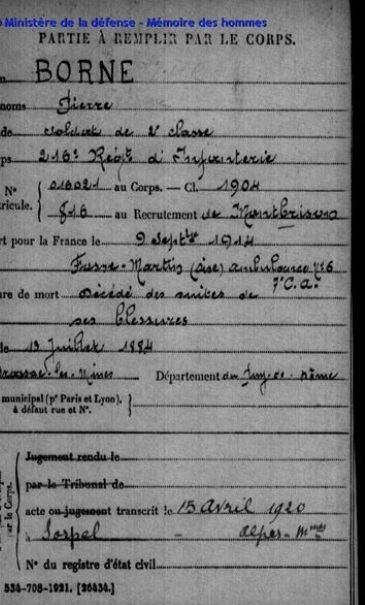 Ministère de la défense - Mémoire des hommes
PARTIE À REMPLIR PAR LE CORPS.
BORNE
noms Pierre
de soldat de 2e classe
ps 216e Régt d'Infanterie
N° 016021 au Corps. — Cl. 1904
tricule. 816 au Recrutement de Montbrison
rt pour la France le 9 Septbre 1914
Fosse-Martin (oise) ambulance n°6
7e C.a.
re de mort Décédé des suites de
ses blessures
le 13 Juillet 1884
-les-Mines Département du Puy-de-Dôme
municipal (pr Paris et Lyon),
à défaut rue et N°.
Jugement rendu le
par le Tribunal de
acte ou jugement transcrit le 15 Avril 1920
à Sospel - Alpes-Mmes
N° du registre d'état civil
par le Corps.
534-708-1921. [26434.]